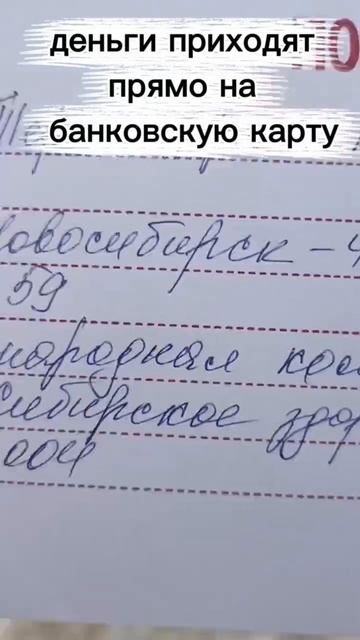 деньги приходят
прямо на
банковскую карту
Новосибирск - 4
59
народная ко
Сибирское здо